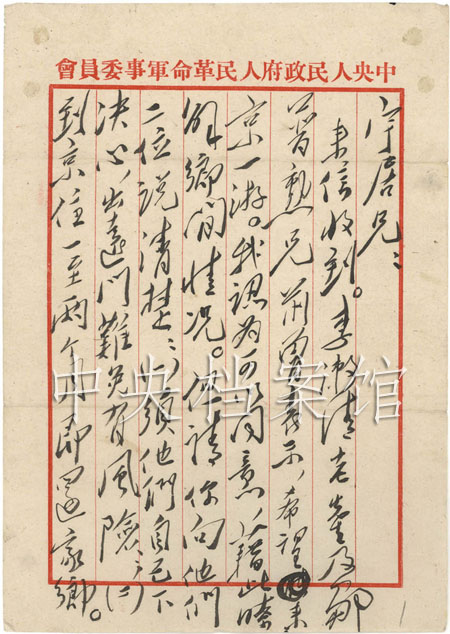 中央人民政府人民革命軍事委員會
宇居兄：
来信收到。李漱清老先生及鄒
普勲兄前有表示，希望来
京一游。我認為可以同意，藉此瞭
解鄉間情况。但請你向他們
二位説清楚：(一)須他們自己下
决心，出遠門難免有風險；(二)
到京住一至兩个月即還家鄉。
1
中央档案馆